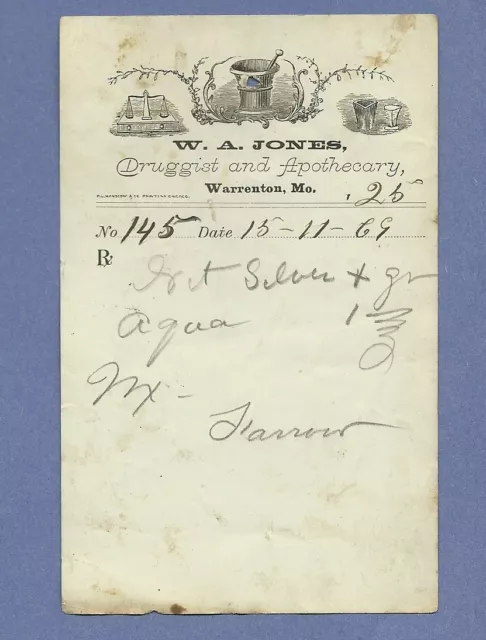 W. A. JONES,
Druggist and Apothecary,
Warrenton, Mo.
, 25
No 145 Date 15-11-69
Rx
Silver + gr
aqua 1 ℥
Mx -
Farrow